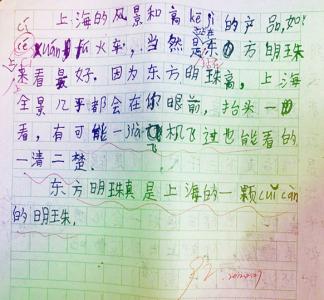 上海的风景和高kējì的产品,如:
cí xuán fú火车,当然是东方明珠
来看最好。因为东方明珠高,上海
全景几乎都会在你眼前,抬头一
看,有可能一jià飞机飞过也能看的
一清二楚。
东方明珠真是上海的一颗cuǐ càn
的明珠。